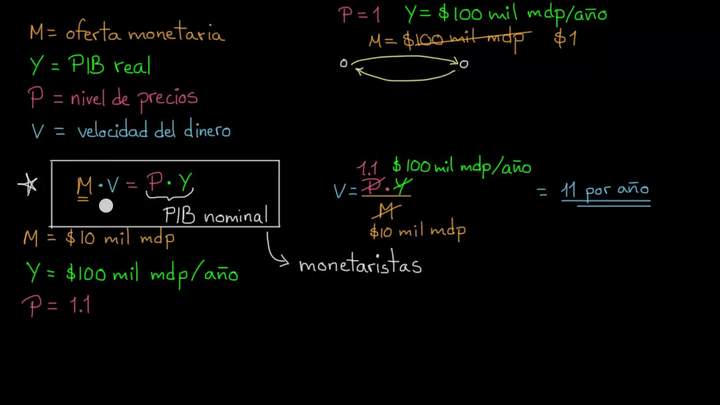 M = oferta monetaria
Y = PIB real
P = nivel de precios
V = velocidad del dinero
M · V = P · Y
PIB nominal
M = $10 mil mdp
Y = $100 mil mdp/año
P = 1.1
P = 1 Y = $100 mil mdp/año
M = $100 mil mdp $1
1.1 $100 mil mdp/año
V = P · Y = 11 por año
M
$10 mil mdp
monetaristas